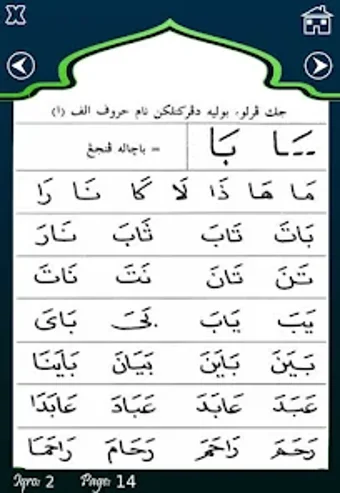 X
جك ڤرلو، بوليه دڤركنلكن نام حروف الف (ا)
ـَا بَا = باچاله ڤنجڠ
مَا هَا ذَا لَا كَا نَا رَا
بَاتَ تَابَ ثَابَ نَارَ
تَنَ تَانَ نَتَ نَاتَ
يَبَ يَابَ بَيَ بَايَ
بَيَنَ بَايَنَ بَيَانَ بَايَنَا
عَبَدَ عَابَدَ عَبَادَ عَابَدَا
رَحَمَ رَاحَمَ رَحَامَ رَاحَمَا
Iqra: 2 Page: 14